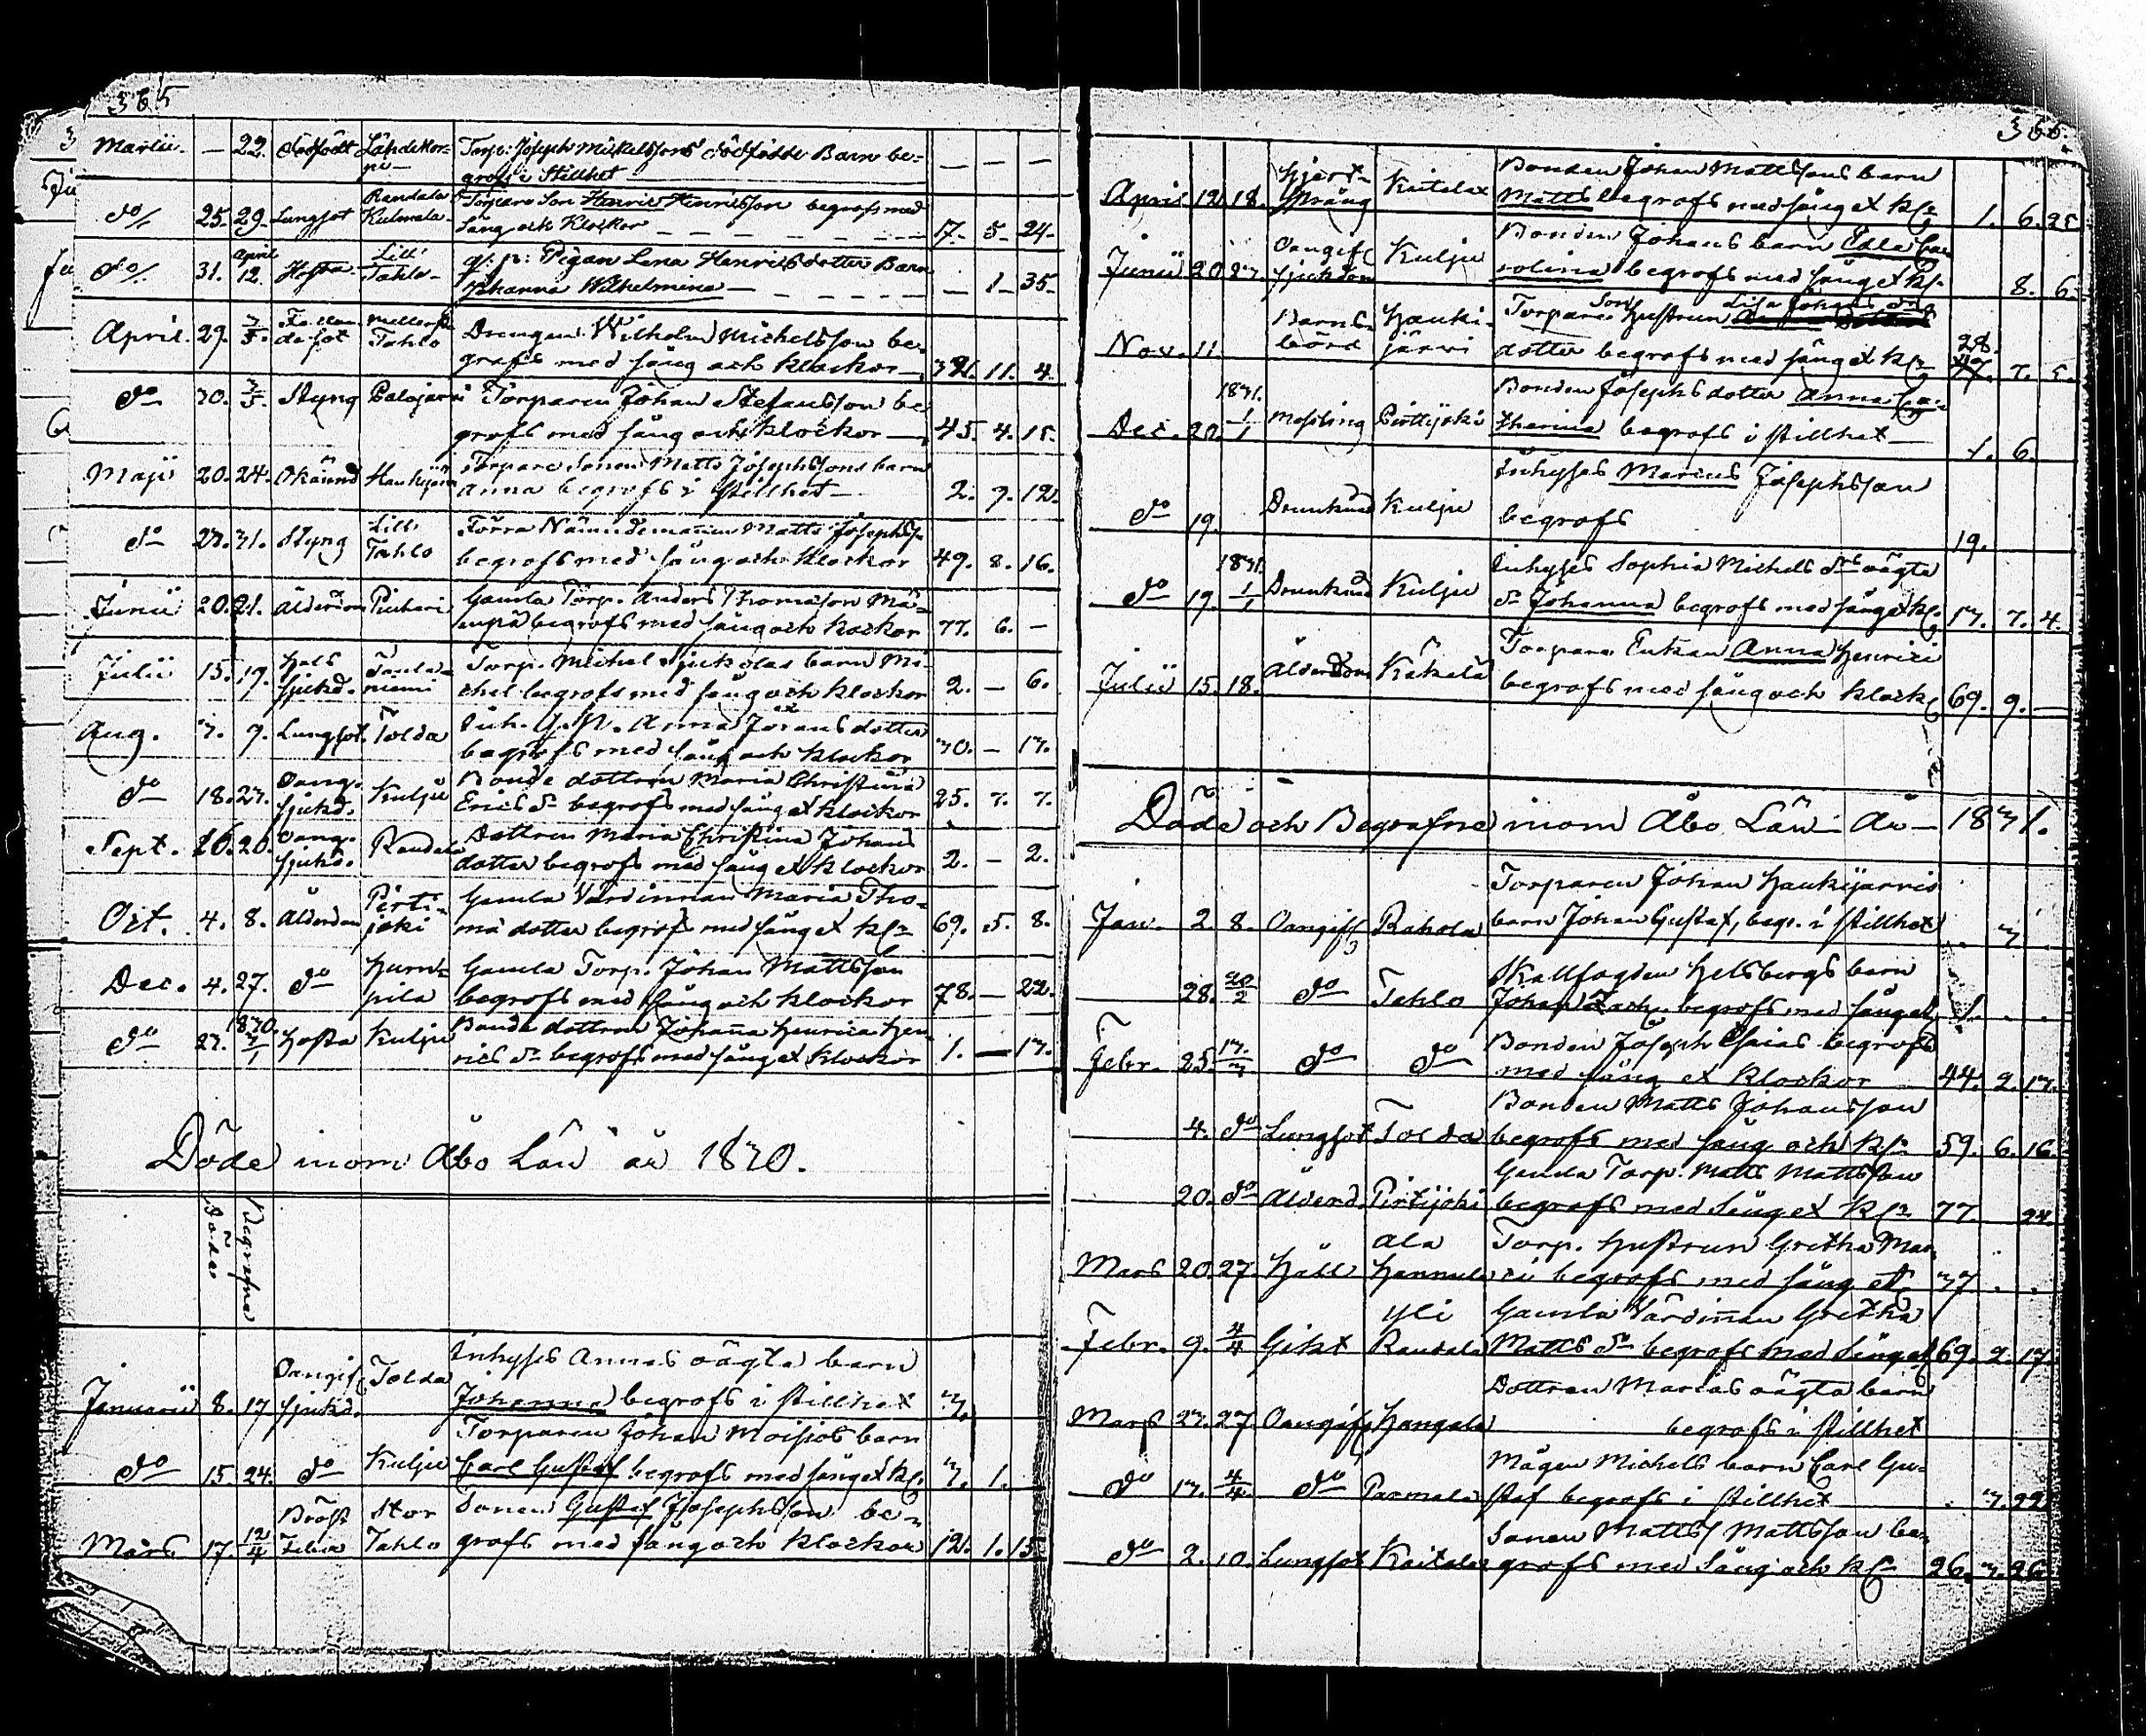 365
Martii. — 22. Dödfödt Torp. Joseph Mickelssons dödfödde Barn be-
grofs i Stillhet — — —
do 25. 29. Lungsot Randala Kulmala Torpare Son Henric Henricsson begrofs med
Sång och Klockor 17. 5. 24.
do 31. April 12. Hosta Lill Tahlo Pigan Lena Henricsdotter Barn
Johanna Wilhelmina — 1 35.
April. 29. Mellersta Tahlo Drengen Wilhelm Michelsson be-
grofs med sång och klockor 11. 4.
do 30. Styng Palojärvi Torparen Johan Stefansson be
grofs med sång och klockor 45. 4. 15.
Maji 20. 24. Okänd Haukijärvi Torpare Sonen Matts Josephssons barn
Anna begrofs i stillhet 2. 9. 12.
do 27. 31. Styng Lill Tahlo Förra Nämndemannen Matts Josephss.
begrofs med sång och klockor 49. 8. 16.
Junii 20. 21. Ålderdom Gamla Torp. Anders Thomasson
begrofs med sång och klockor 77. 6. —
Julii 15. 19. Hals sjukd. Torp. Michel barn Mi-
chel begrofs med sång och klockor 2. — 6.
Aug. 7. 9. Lungsot Tolda Inh. Anna Jöransdotter
begrofs med sång och klockor 30. — 17.
do 18. 27. Oang. sjukd. Kulju Bonde dottren Maria Christina
Erics dr begrofs med sång et klockor 25. 7. 7.
Sept. 16. 20. Oang. sjukd. Randala Dottren Maria Christina Johans
dotter begrofs med sång et klockor 2. — 2.
Oct. 4. 8. Ålderdom Pirtijoki Gamla Värdinnan Maria Tho-
mä dotter begrofs med sång et klr 69. 5. 8.
Dec. 4. 27. do Gamla Torp. Johan Mattsson
begrofs med sång och klockor 78. — 22.
do 27. 1830 Hosta Kulju Bonde dottren Johanna Henrica Hen
rics dr begrofs med sång et klockor 1. — 17.
Döde inom Åbo Län år 1830.
Döde Begrafne
Januarii 8. 17 Oangif. sjukd. Tolda Inhyses Annas oägta barn
Johanna begrofs i stillhet 3.
do 15. 24. do Kulju Torparen Johan Moisios barn
Carl Gustaf begrofs med sång et kl. 3. 1.
Mars 17. 12/4 Bröst Feber Stor Tahlo Sonen Gustaf Josephsson be-
grofs med sång och klockor 12. 1. 15.
366.
April 12. 18. Hjertsprång Kaitala Bonden Johan Mattssons barn
Matts begrofs med sång et klr 1. 6. 25
Junii 20. 27. Oangifl sjukdom Kulju Bonden Johans barn Edla Ca-
rolina begrofs med sång et kl. 8. 6.
Nov. 11. Barnsbörd Haukijärvi Torpare Son Hustrun Lisa Johans
dotter begrofs med sång et klr 28. 7. 5.
Dec. 20. 1831. 1/1 Messling Pirttijoki Bonden Josephs dotter Anna Ca-
tharina begrofs i stillhet 1. 6.
do 19. Drunknad Kulju Inhyses Marcus Josephsson
begrofs 19.
do 19. 1831. 1/1 Drunknad Kulju Inhyses Sophia Michels drs oägta
dr Johanna begrofs med sång et kl. 17. 7. 4.
Julii 15. 18. Ålderdom Käkelä Torpare Enkan Anna Henrici
begrofs med sång och klock 69. 9. —
Döde och Begrafne inom Åbo Län År 1831.
Jan. 2. 8. Oangifl Rahola Torparen Johan Haukijärvis
barn Johan Gustaf, begr. i stillhet . 3 .
28. 20/2 do Tahlo Skallfogden Helsbergs barn
Johan Zach. begrofs med sång et 1. . .
Febr. 25. 13./3 do do Bonden Joseph Esaias begrofs
med sång et klockor 44. 2. 17.
4. do Lungsot Tolda Bonden Matts Johansson
begrofs med sång och klr 59. 6. 16.
20. do Ålderd. Pirtijoki Gamla Torp. Matts Mattsson
begrofs med sång et klr 77. 24
Mars 20. 27. Håll Ala Hannula Torp. Hustrun Gretha
begrofs med sång et 37 . .
Febr. 9. 4/4 Gikt Yli Randala Gamla Värdinnan Gretha
Matts dr begrofs med sång et 69. 2. 17.
Mars 27. 27 Oangifl Hangala Dottren Marias oägta barn
begrofs i stillhet
do 17. 4/4. do Parmala Mågen Michels barn Carl Gu-
staf begrofs i stillhet . 3. 22
do 2. 10. Lungsot Kaitala Sonen Matts Mattsson be-
grofs med Sång och klr 26. 3. 26